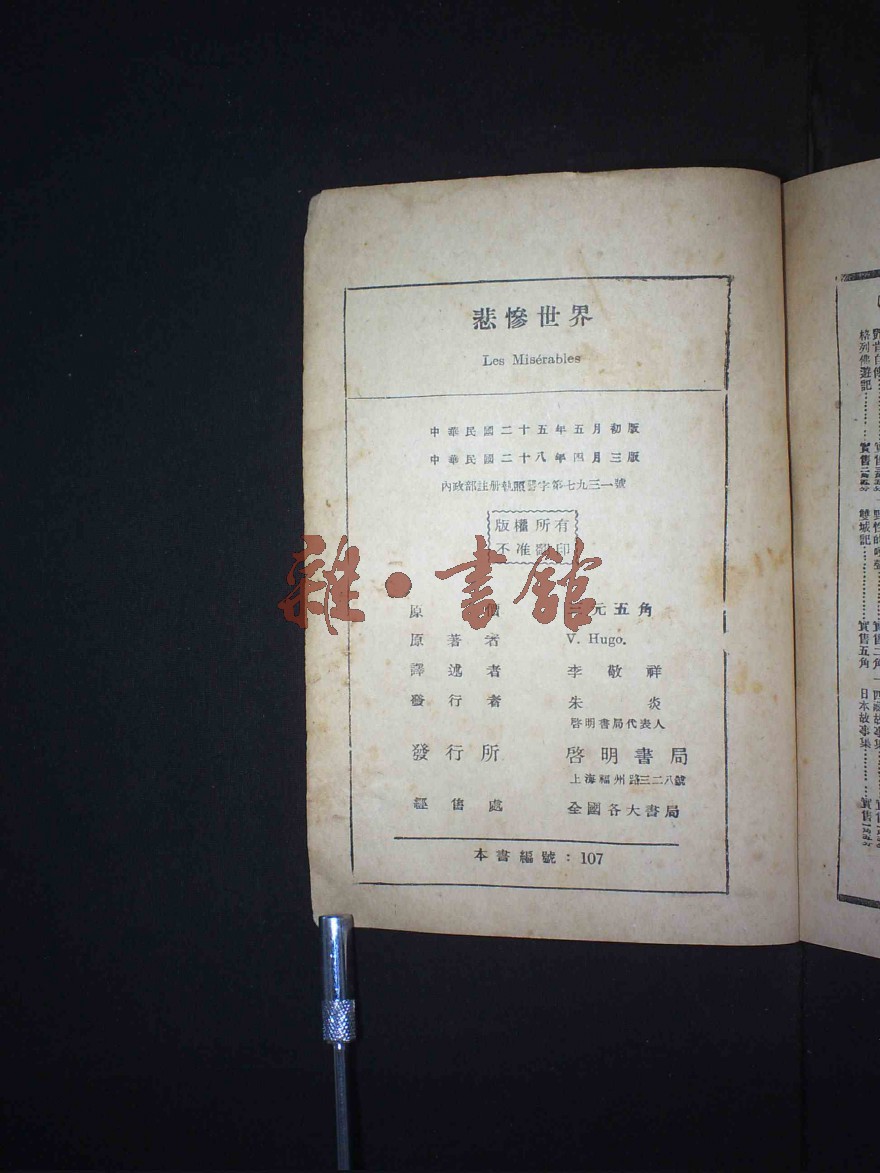 悲慘世界
Les Misérables
中華民國二十五年五月初版
中華民國二十八年四月三版
內政部註册執照警字第七九三一號
版權所有
不准翻印
雜·書館
原價 三元五角
原著者 V. Hugo.
譯述者 李敬祥
發行者 朱炎
啓明書局代表人
發行所 啓明書局
上海福州路三二八號
經售處 全國各大書局
本書編號：107
格列佛遊記
雙城記 實售五角
日本故事集